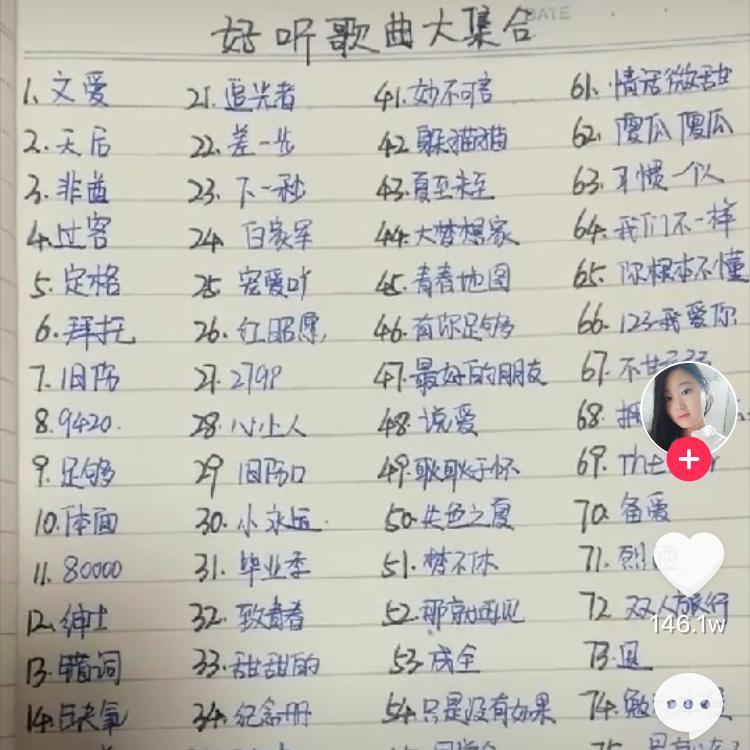 好听歌曲大集合
DATE
1.文爱
2.天后
3.非酋
4.过客
5.定格
6.拜托
7.旧街
8.9420.
9.足够
10.体面
11.80000
12.绅士
13.错词
14.缺氧
21.追光者
22.差一步
23.下一秒
24.白家军
25.宠爱吖
26.红昭愿,
27.2799
28.心上人
29旧街口
30.小永远.
31.毕业季
32.致青春
33.甜甜的
34.纪念册
41.妙不可言
42.躲猫猫
43.夏至未至
44.大梦想家
45.青春地图
46.有你足够
47.最好的朋友
48.说爱
49.耿耿于怀
50.失色之夏
51.梦不休
52.那就再见
53.成全
54.只是没有如果
61.情话微甜
62.傻瓜傻瓜
63.习惯一个人
64.我们不一样
65.你根本不懂
66.123我爱你
67.不甘
68.拥
69.The
70.备爱
71.烈酒
72双人旅行
73.退
74.勉
146.1w